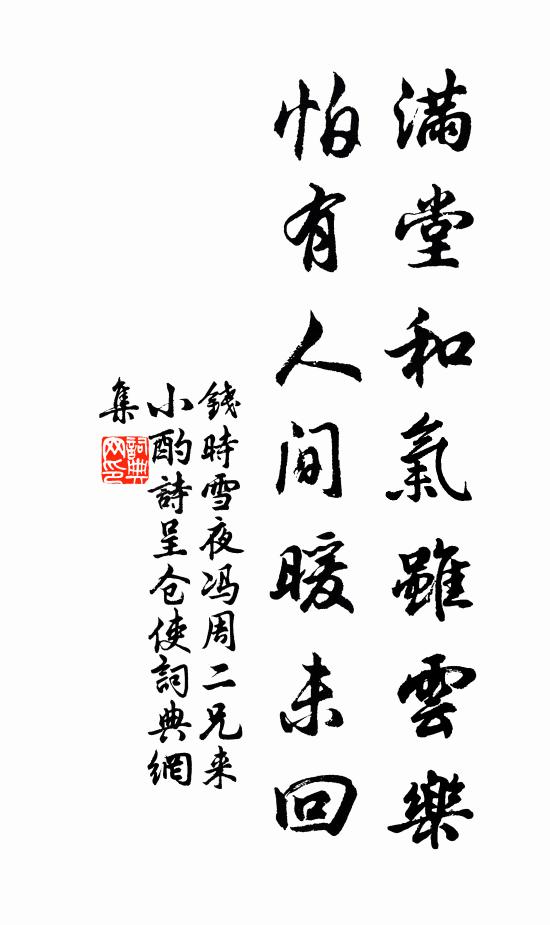 滿堂和氣雖雲樂
怕有人間暖未回
錢時雪夜冯周二兄来
小酌詩呈仓使詞典網
集
詞典
网印